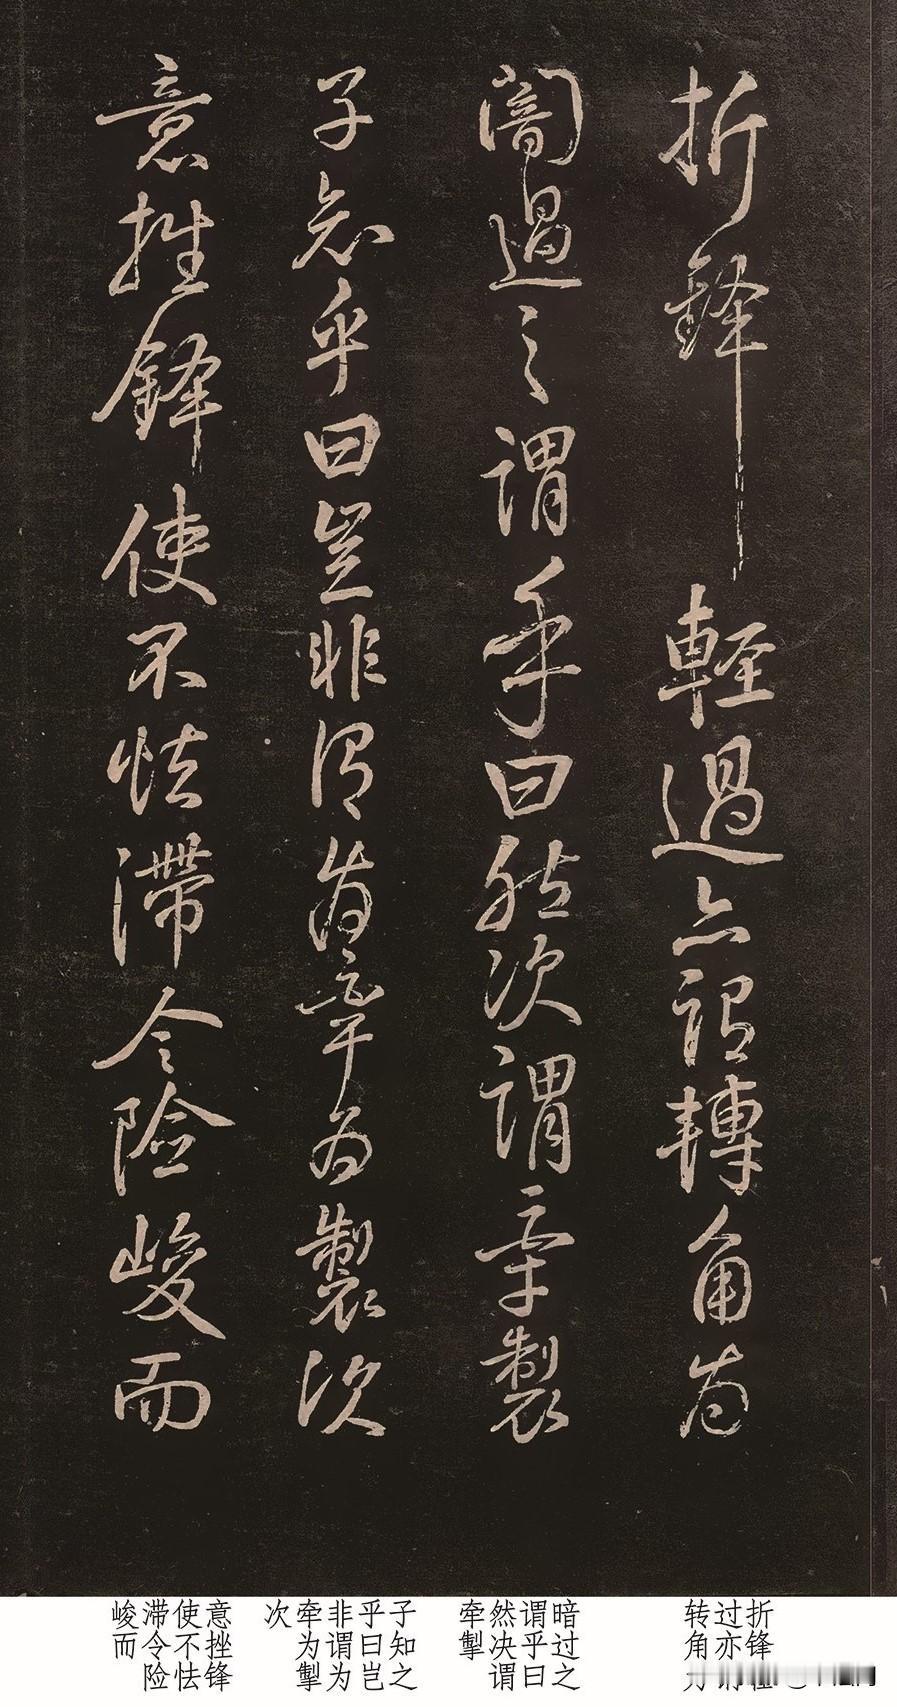 折鋒輕過亦謂轉角為
闇過之謂乎曰然決謂牽製
子知乎曰豈非謂為牽為製決
意挫鋒使不怯滯令險峻而
折锋
过亦
转角
暗过之
谓乎曰
然决谓
牵掣
子知之
乎曰岂
非谓为
牵为掣
次
意挫锋
使不怯
滞令险
峻而